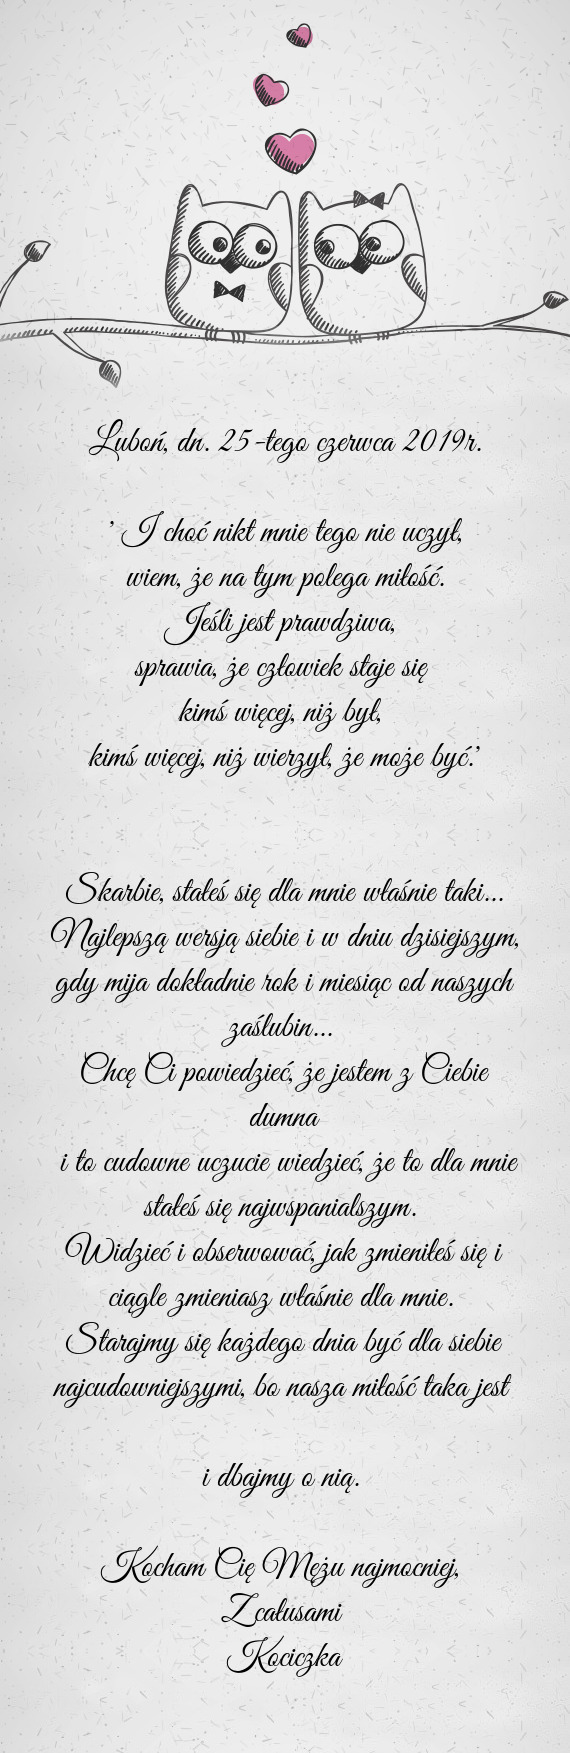 Luboń, dn. 25-tego czerwca 2019r.
' I choć nikt mnie tego nie uczył,
wiem, że na tym polega miłość.
Jeśli jest prawdziwa,
sprawia, że człowiek staje się
kimś więcej, niż był,
kimś więcej, niż wierzył, że może być.'
Skarbie, stałeś się dla mnie właśnie taki...
Najlepszą wersją siebie i w dniu dzisiejszym,
gdy mija dokładnie rok i miesiąc od naszych
zaślubin...
Chcę Ci powiedzieć, że jestem z Ciebie
dumna
i to cudowne uczucie wiedzieć, że to dla mnie
stałeś się najwspanialszym.
Widzieć i obserwować, jak zmieniłeś się i
ciągle zmieniasz właśnie dla mnie.
Starajmy się każdego dnia być dla siebie
najcudowniejszymi, bo nasza miłość taka jest
i dbajmy o nią.
Kocham Cię Mężu najmocniej,
Zcałusami
Kociczka